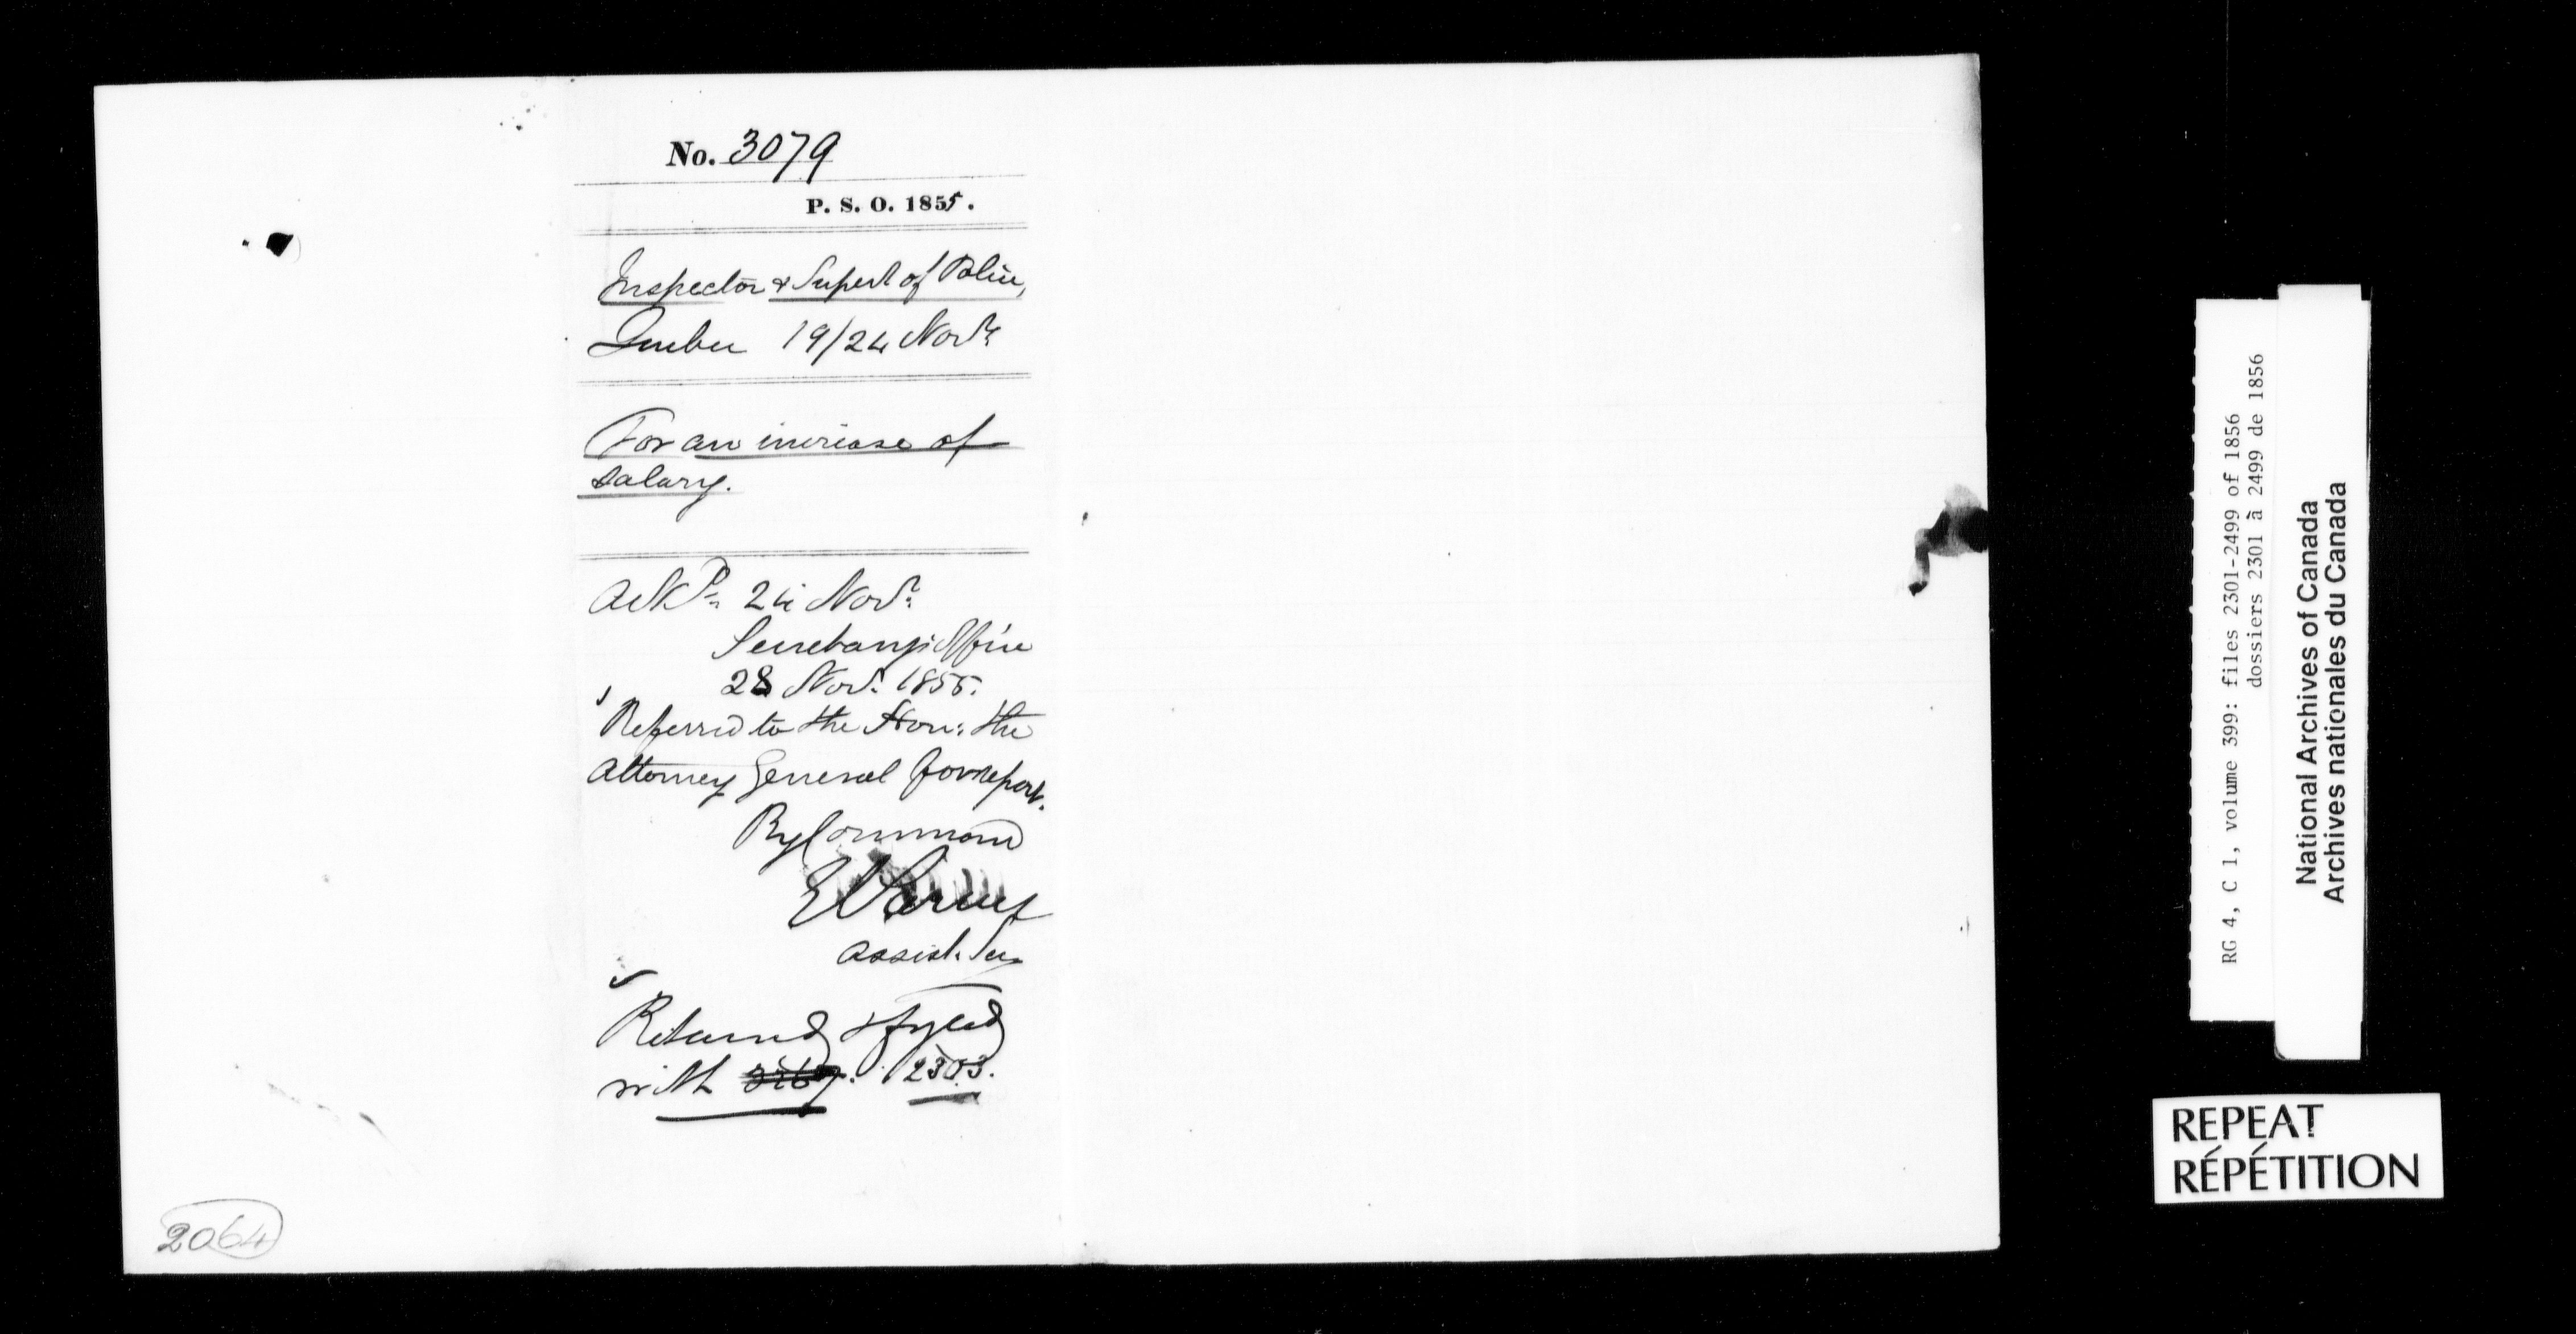 No. 3079
P. S. O. 1855.
Inspector & Supert of Police,
Quebec 19/24 Novr.
For an increase of
salary.
Ackd. 24 Novr.
Secretary's Office
28 Novr. 1855.
Referred to the Hon: the
Attorney General for report.
By Command
E Parent
Assist. Secy
Returned & fyled
with 2303.
2064
RG 4, C 1, volume 399: files 2301-2499 of 1856
dossiers 2301 à 2499 de 1856
National Archives of Canada
Archives nationales du Canada
REPEAT
RÉPÉTITION